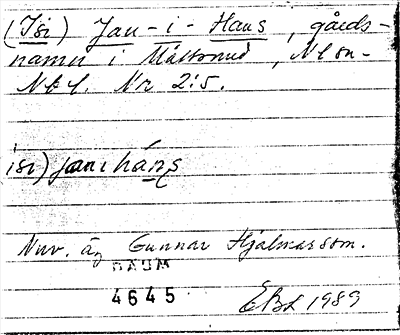 (Isi) Jan-i-Hans, gårds-
namn i Måttsund, Nlön-
Nbl. Nr 2:5.
isi) janı háns
Nuv. äg Gunnar Hjalmarsson.
DAUM
4645
EBL 1989